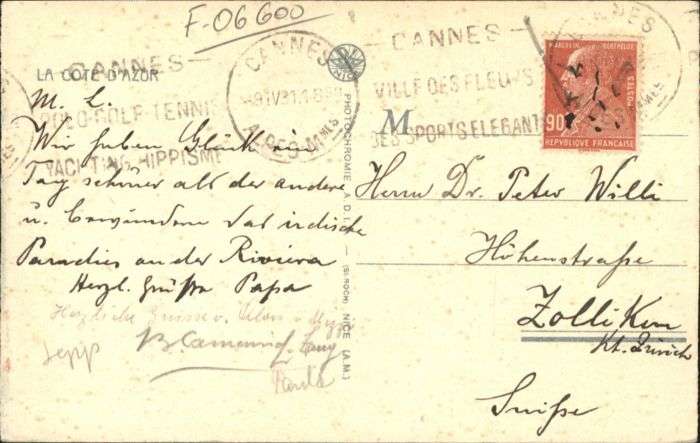 F-06600
LA COTE D'AZUR
CANNES
POLO-GOLF-TENNIS
YACHTING-HIPPISME
CANNES
A-PES MMES
CANNES
VILLE DES FLEURS
DES SPORTS ELEGANTS
MARCELIN BERTHELOT
POSTES
90
REPVBLIQVE FRANÇAISE
M
PHOTOCHROMIE A.D.I.A. — (St. ROCH) NICE (A.M.)
M. L.
Wir haben Glück ein
Tag schöner als der andere
u. bewundern das irdische
Paradies an der Riviera
Herzl. Grüsse Papa
Herzliche Grüsse v.
Sepp
Herrn Dr. Peter Willi
Höhenstraße
Zollikon
Kt. Zürich
Suisse